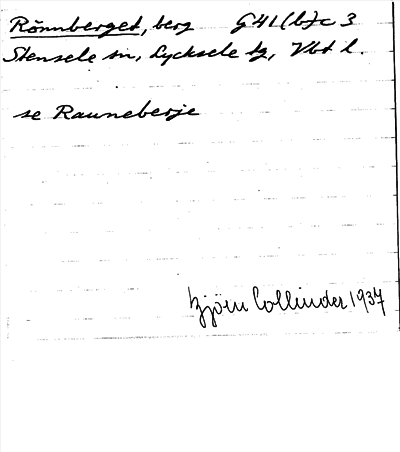 Rönnberget, berg G41(b)c 3
Stensele sn, Lycksele tg, Vbt l.
se Rauneberje
Björn Collinder 1937